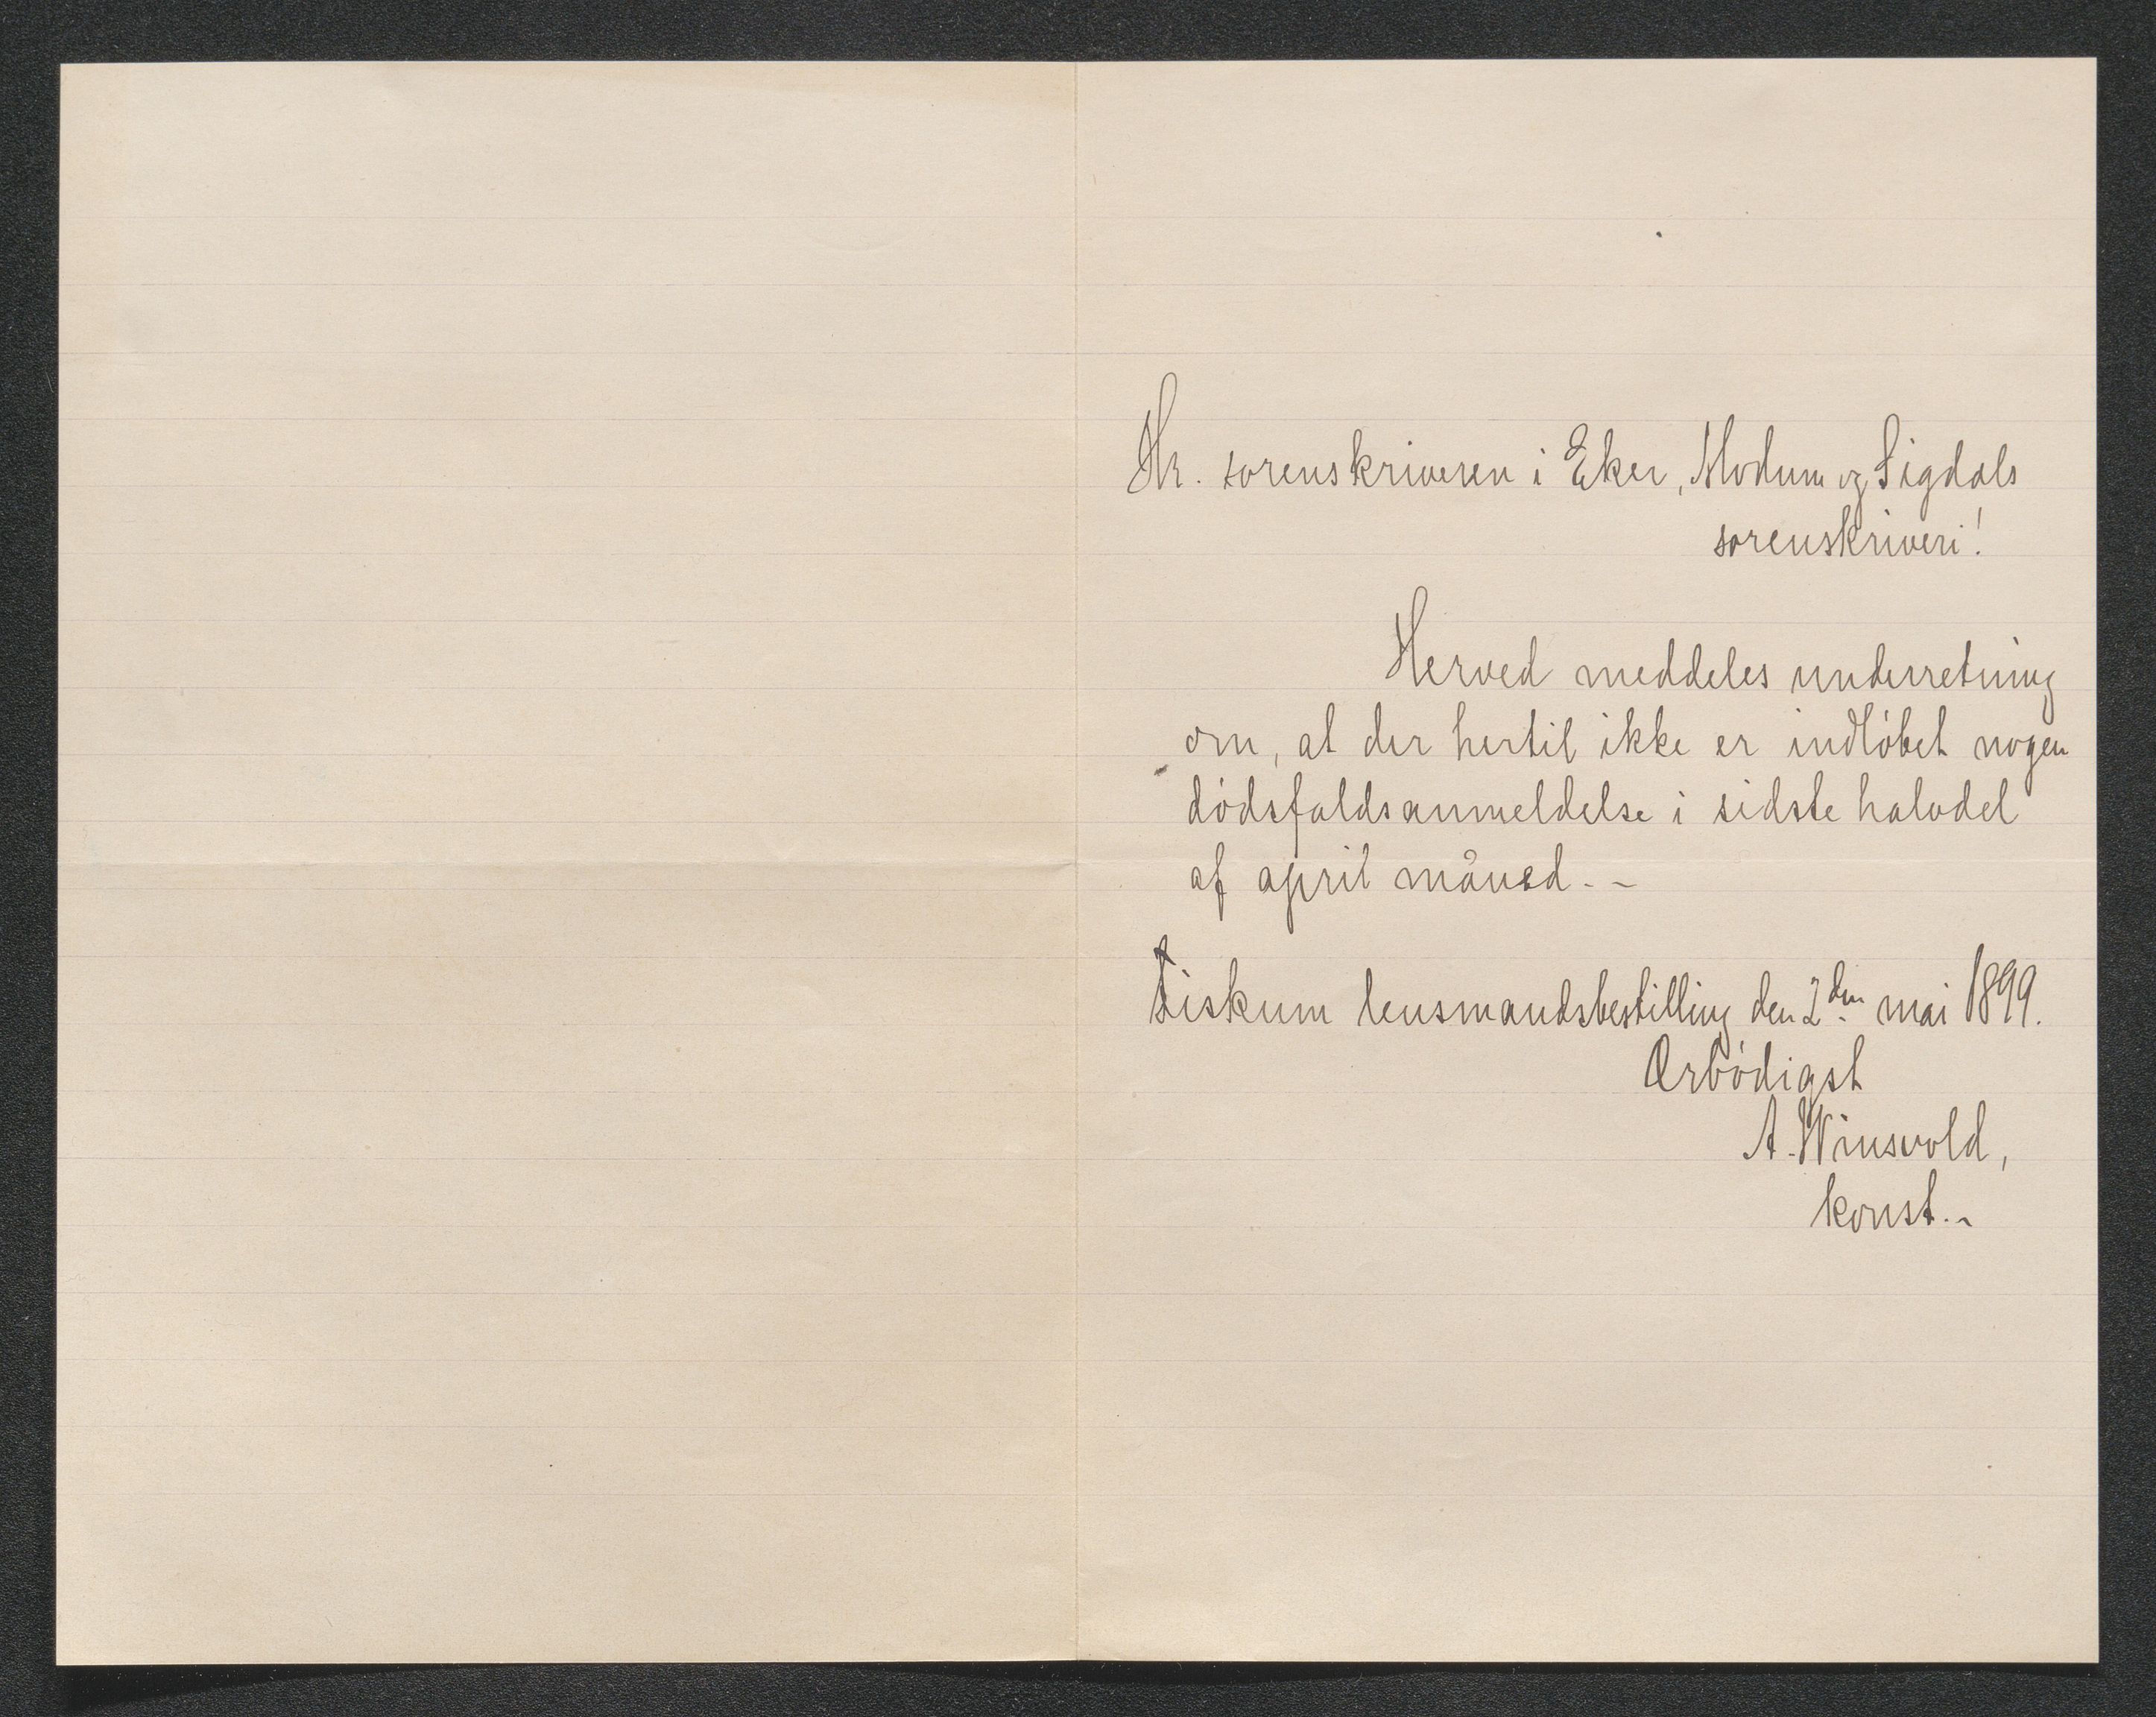 Hr. sorenskriveren i Eker, Modum og Sigdals
sorenskriveri!
Herved meddeles underretning
om, at der hertil ikke er indløbet nogen
dødsfaldsanmeldelse i sidste halvdel
af april måned. -
Fiskum lensmandsbestilling den 2den mai 1899.
Ærbødigst
A. Winsvold,
konst. -